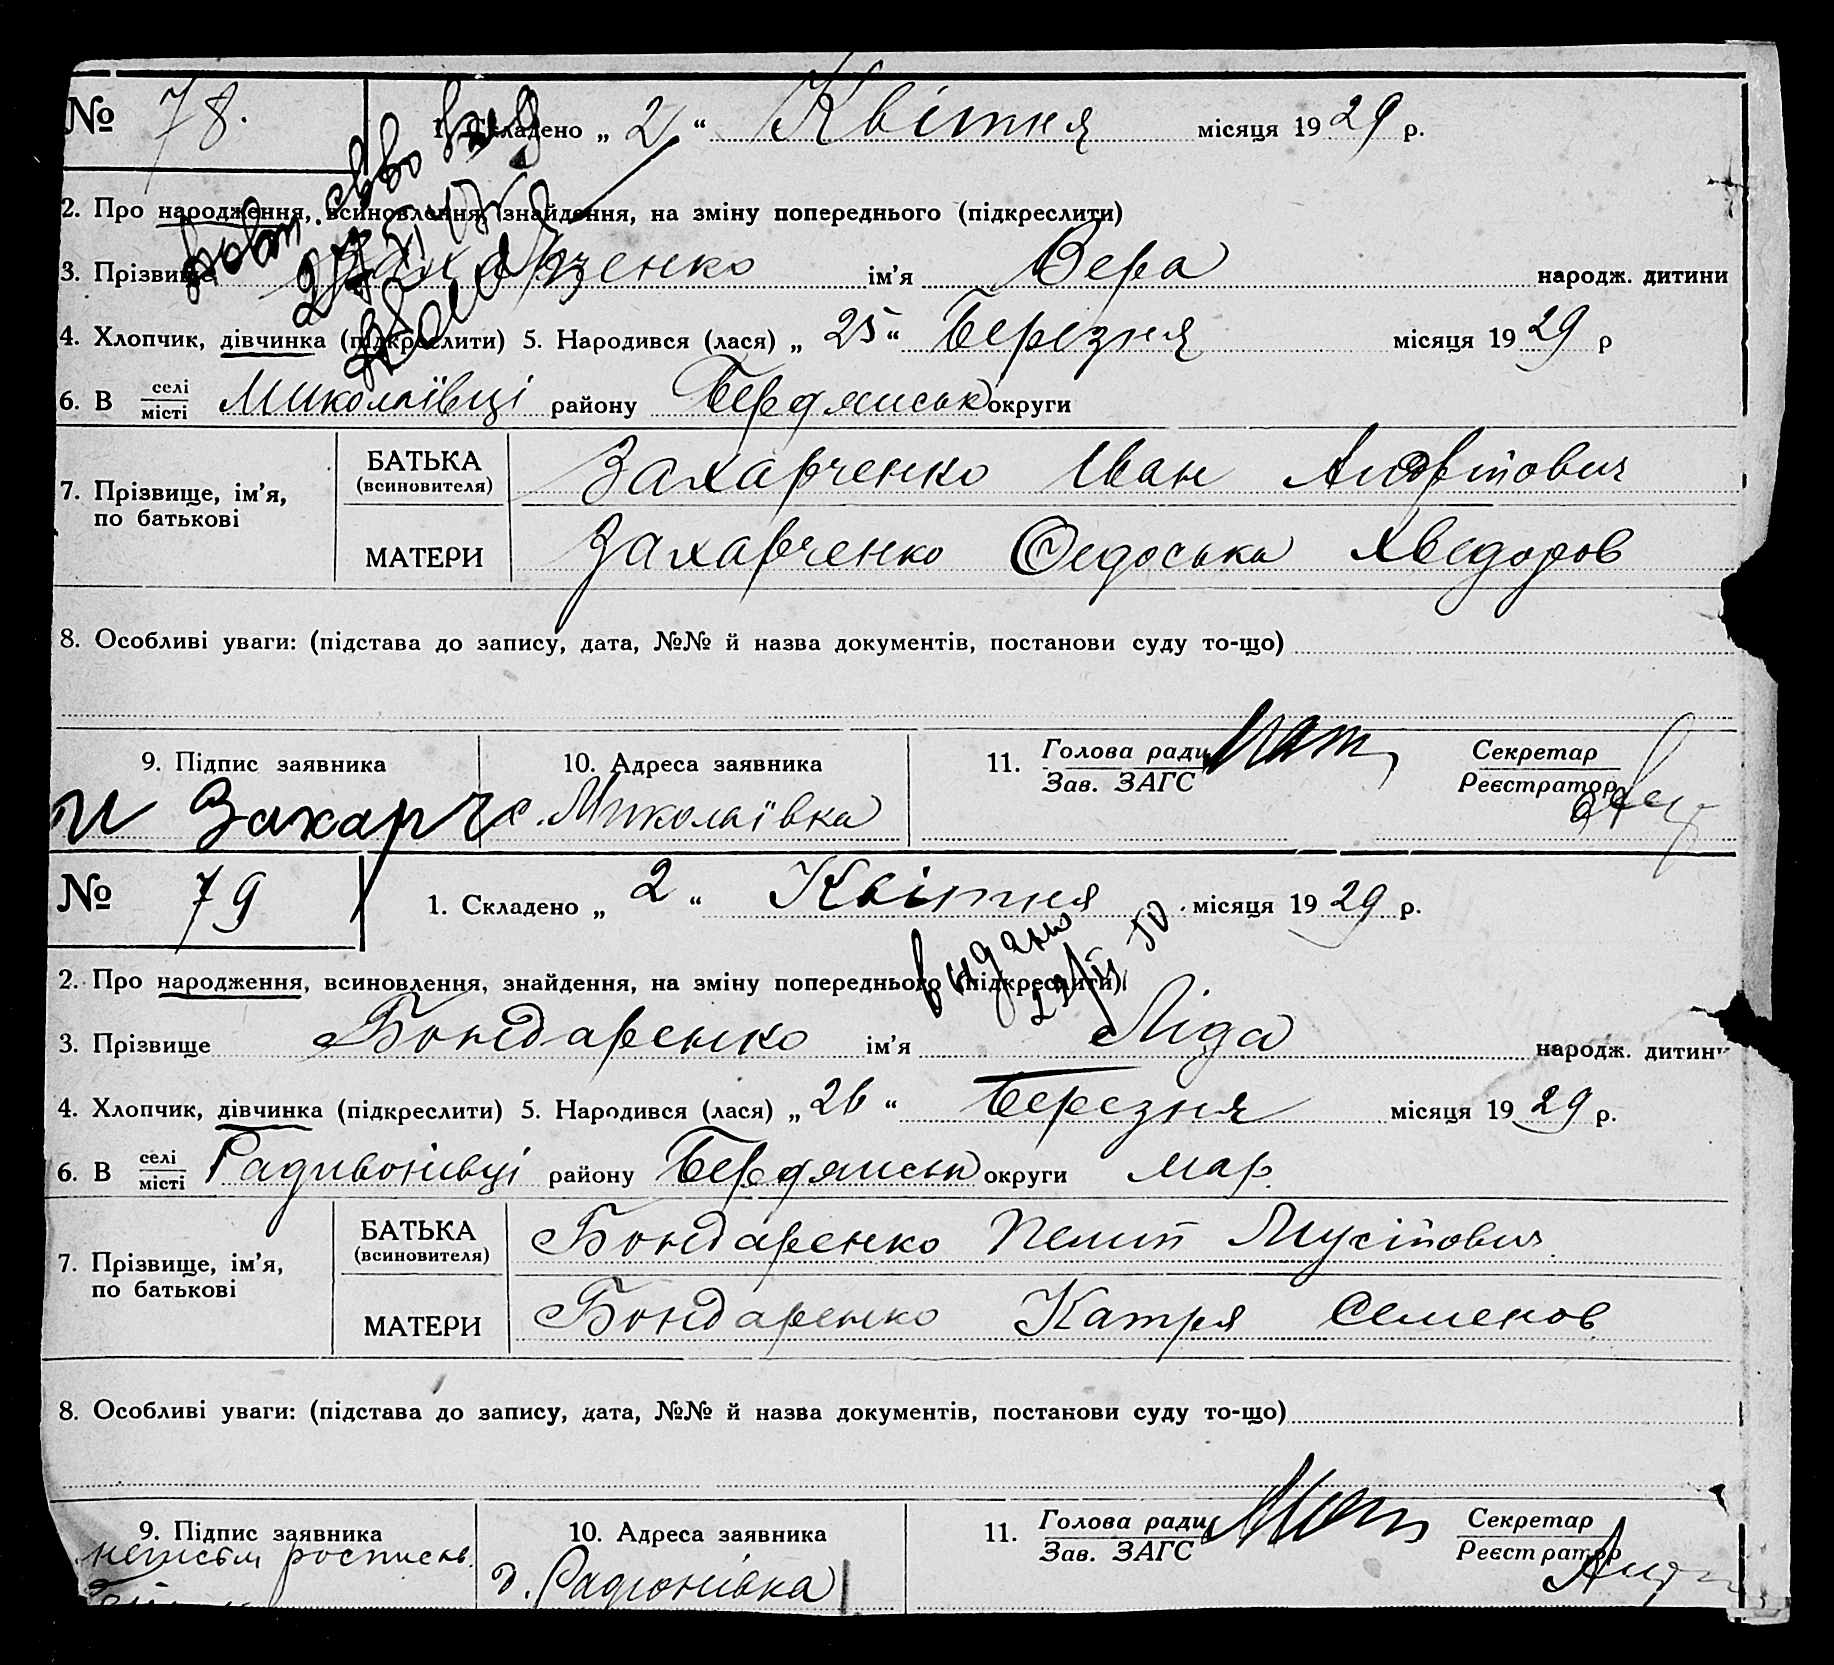 № 78. 1. Складено „ 2 “ Квітня місяця 1929 р.
повт. св-во выд
2. Про народження, всиновлення, знайдення, на зміну попереднього (підкреслити)
3. Прізвище Захарченко ім’я Вера народж. дитини
4. Хлопчик, дівчинка (підкреслити) 5. Народився (лася) „ 25 “ Березня місяця 1929 р
6. В селі/місті Миколаївці району Бердянськ округи
7. Прізвище, ім’я, по батькові
БАТЬКА (всиновителя) Захарченко Іван
МАТЕРИ Захарченко Федоська Хведоров
8. Особливі уваги: (підстава до запису, дата, №№ й назва документів, постанови суду то-що)
9. Підпис заявника 10. Адреса заявника 11. Голова ради Секретар
Зав. ЗАГС Реєстратор
и Захарч с. Миколаївка
№ 79 1. Складено „ 2 “ Квітня місяця 1929 р.
видано
2. Про народження, всиновлення, знайдення, на зміну попереднього (підкреслити)
3. Прізвище Бондаренко ім’я Ліда народж. дитини
4. Хлопчик, дівчинка (підкреслити) 5. Народився (лася) „ 26 “ Березня місяця 1929 р.
6. В селі/місті Радивонівці району Бердянськ округи мар.
7. Прізвище, ім’я, по батькові
БАТЬКА (всиновителя) Бондаренко Пилип Мусійович
МАТЕРИ Бондаренко Катря Семенов
8. Особливі уваги: (підстава до запису, дата, №№ й назва документів, постанови суду то-що)
9. Підпис заявника 10. Адреса заявника 11. Голова ради Секретар
Зав. ЗАГС Реєстратор
росписью